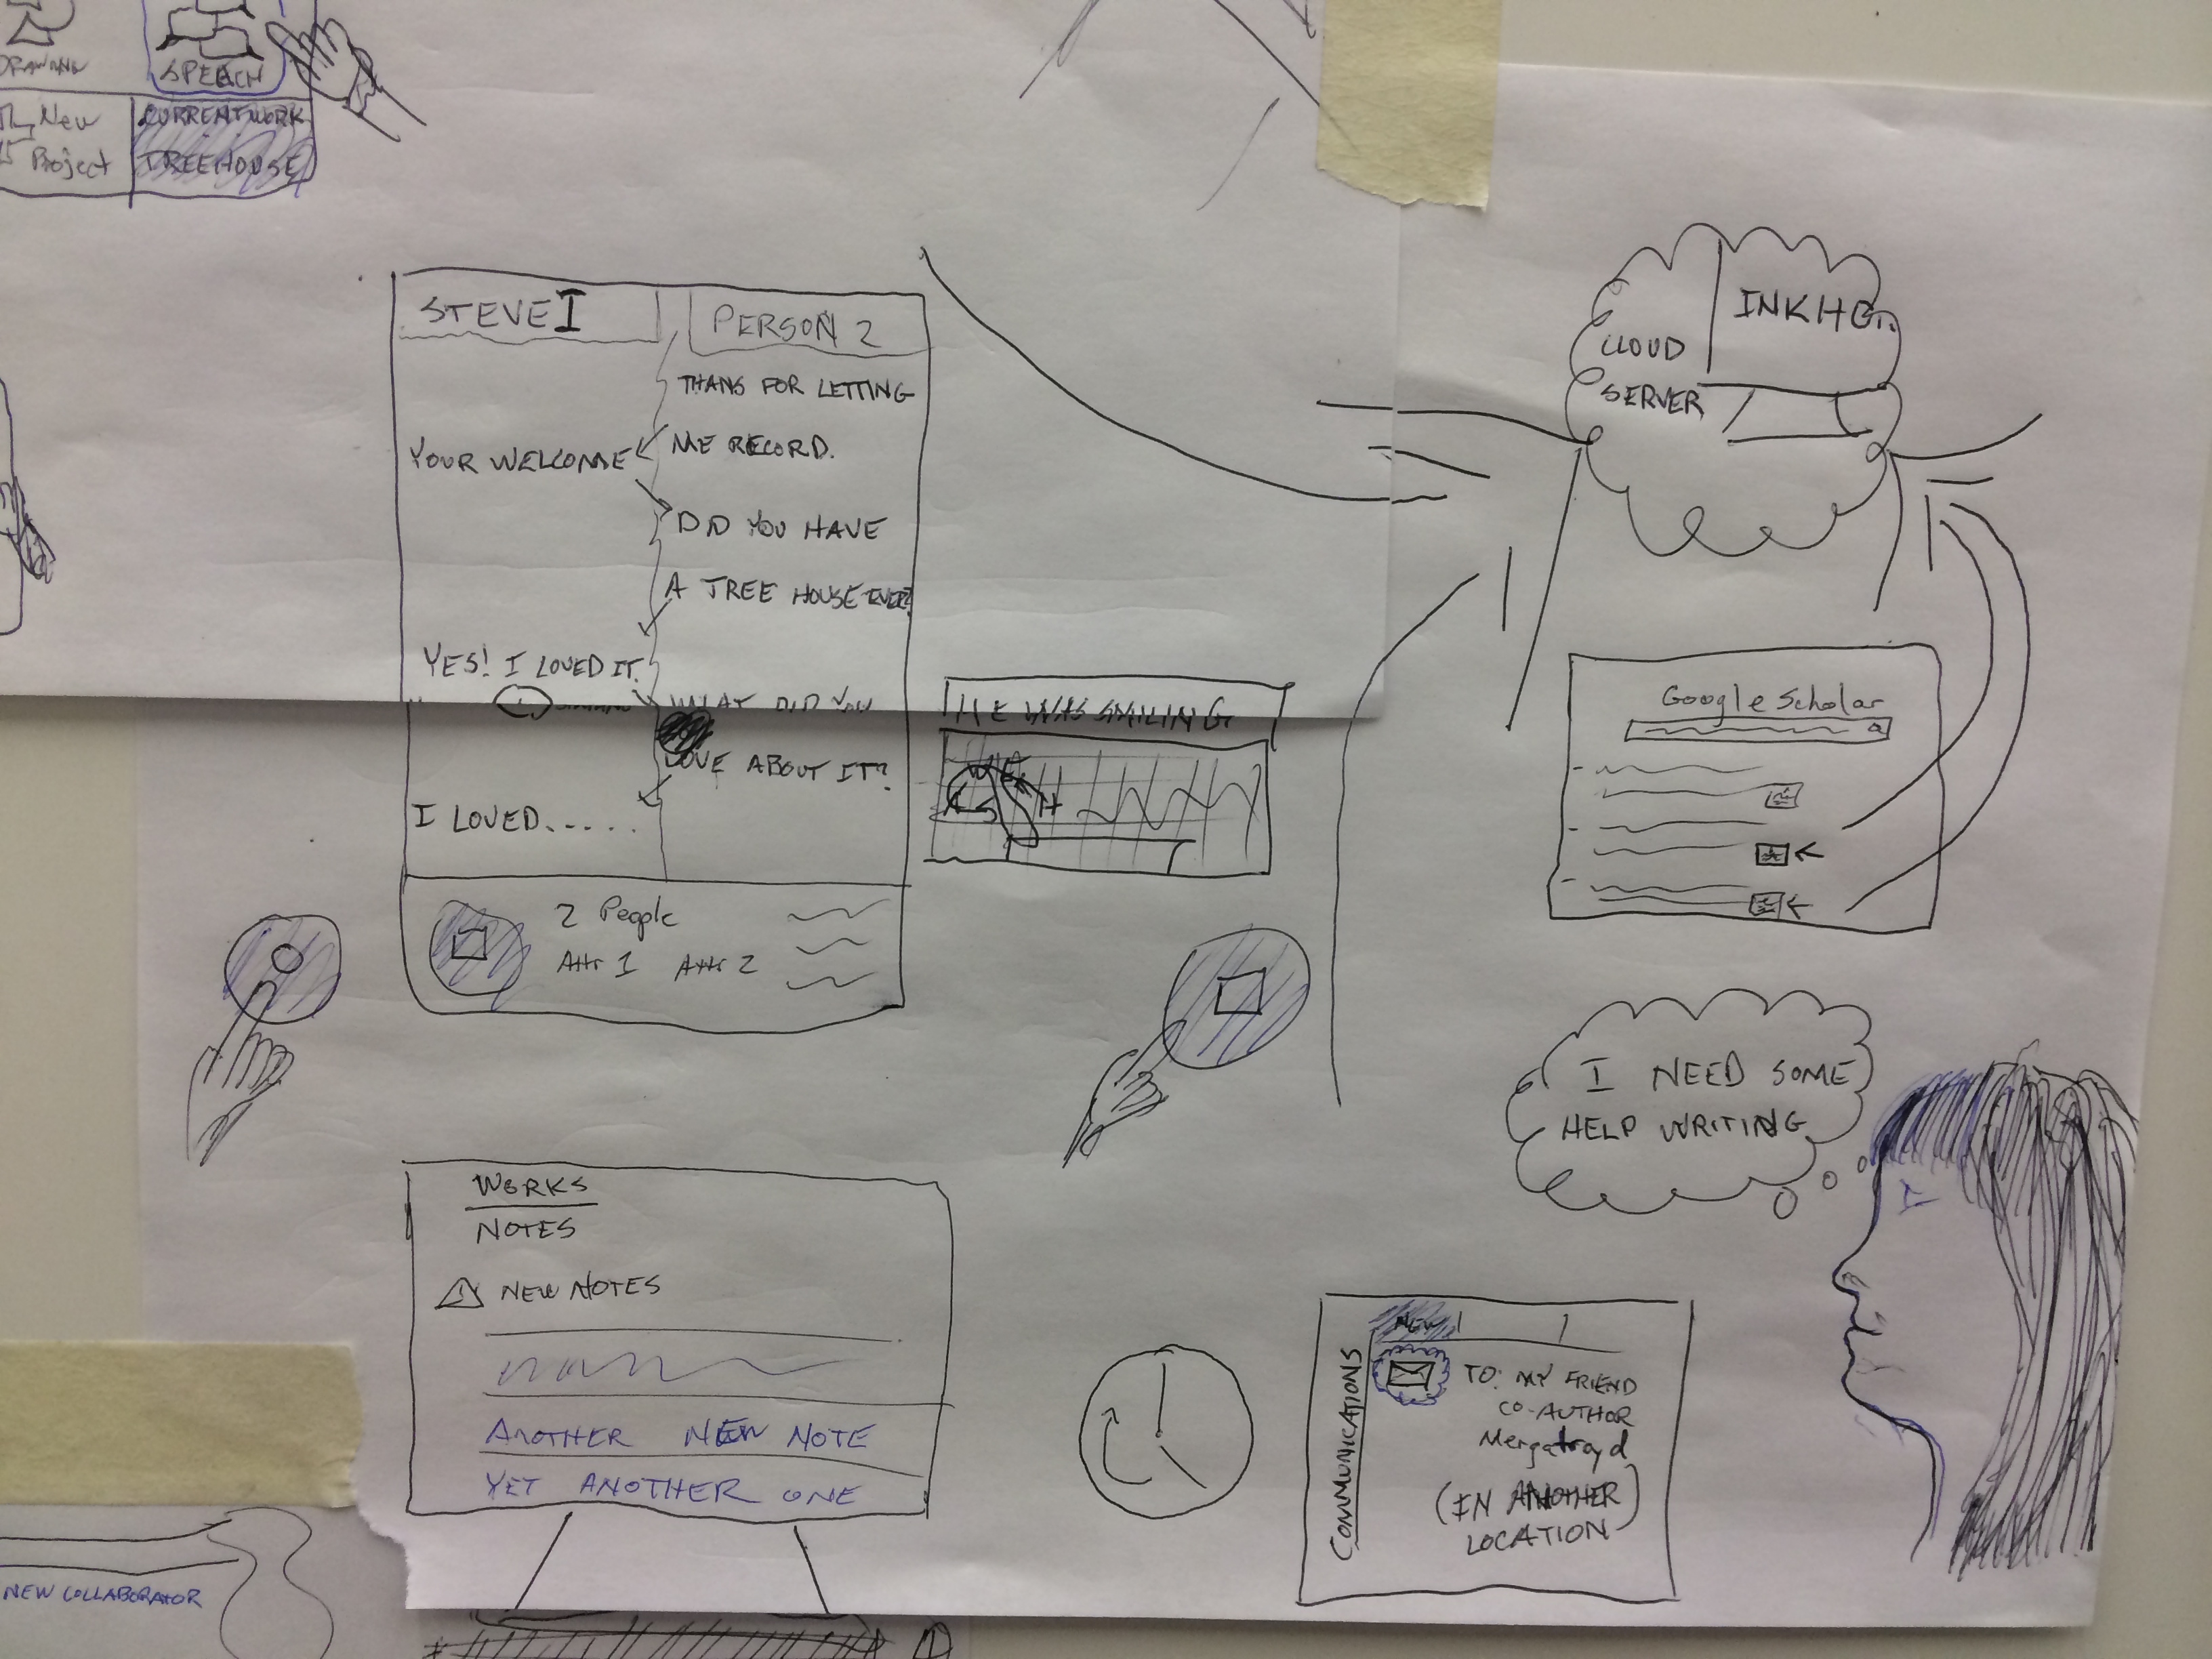 DRAWING
SPEECH
New
Project
CURRENT WORK
TREEHOUSE
STEVE I
PERSON 2
THANS FOR LETTING
ME RECORD.
YOUR WELCOME
DID YOU HAVE
A TREE HOUSE EVER?
YES! I LOVED IT.
WHAT DID YOU
LOVE ABOUT IT?
I LOVED.....
2 People
Attr 1 Attr 2
HE WAS SMILING
CLOUD
SERVER
INKHG.
Google Scholar
I NEED SOME
HELP WRITING
WORKS
NOTES
NEW NOTES
ANOTHER NEW NOTE
YET ANOTHER ONE
COMMUNICATIONS
NEW
TO: MY FRIEND
CO-AUTHOR
Mergatroyd
(IN ANOTHER
LOCATION)
NEW COLLABORATOR